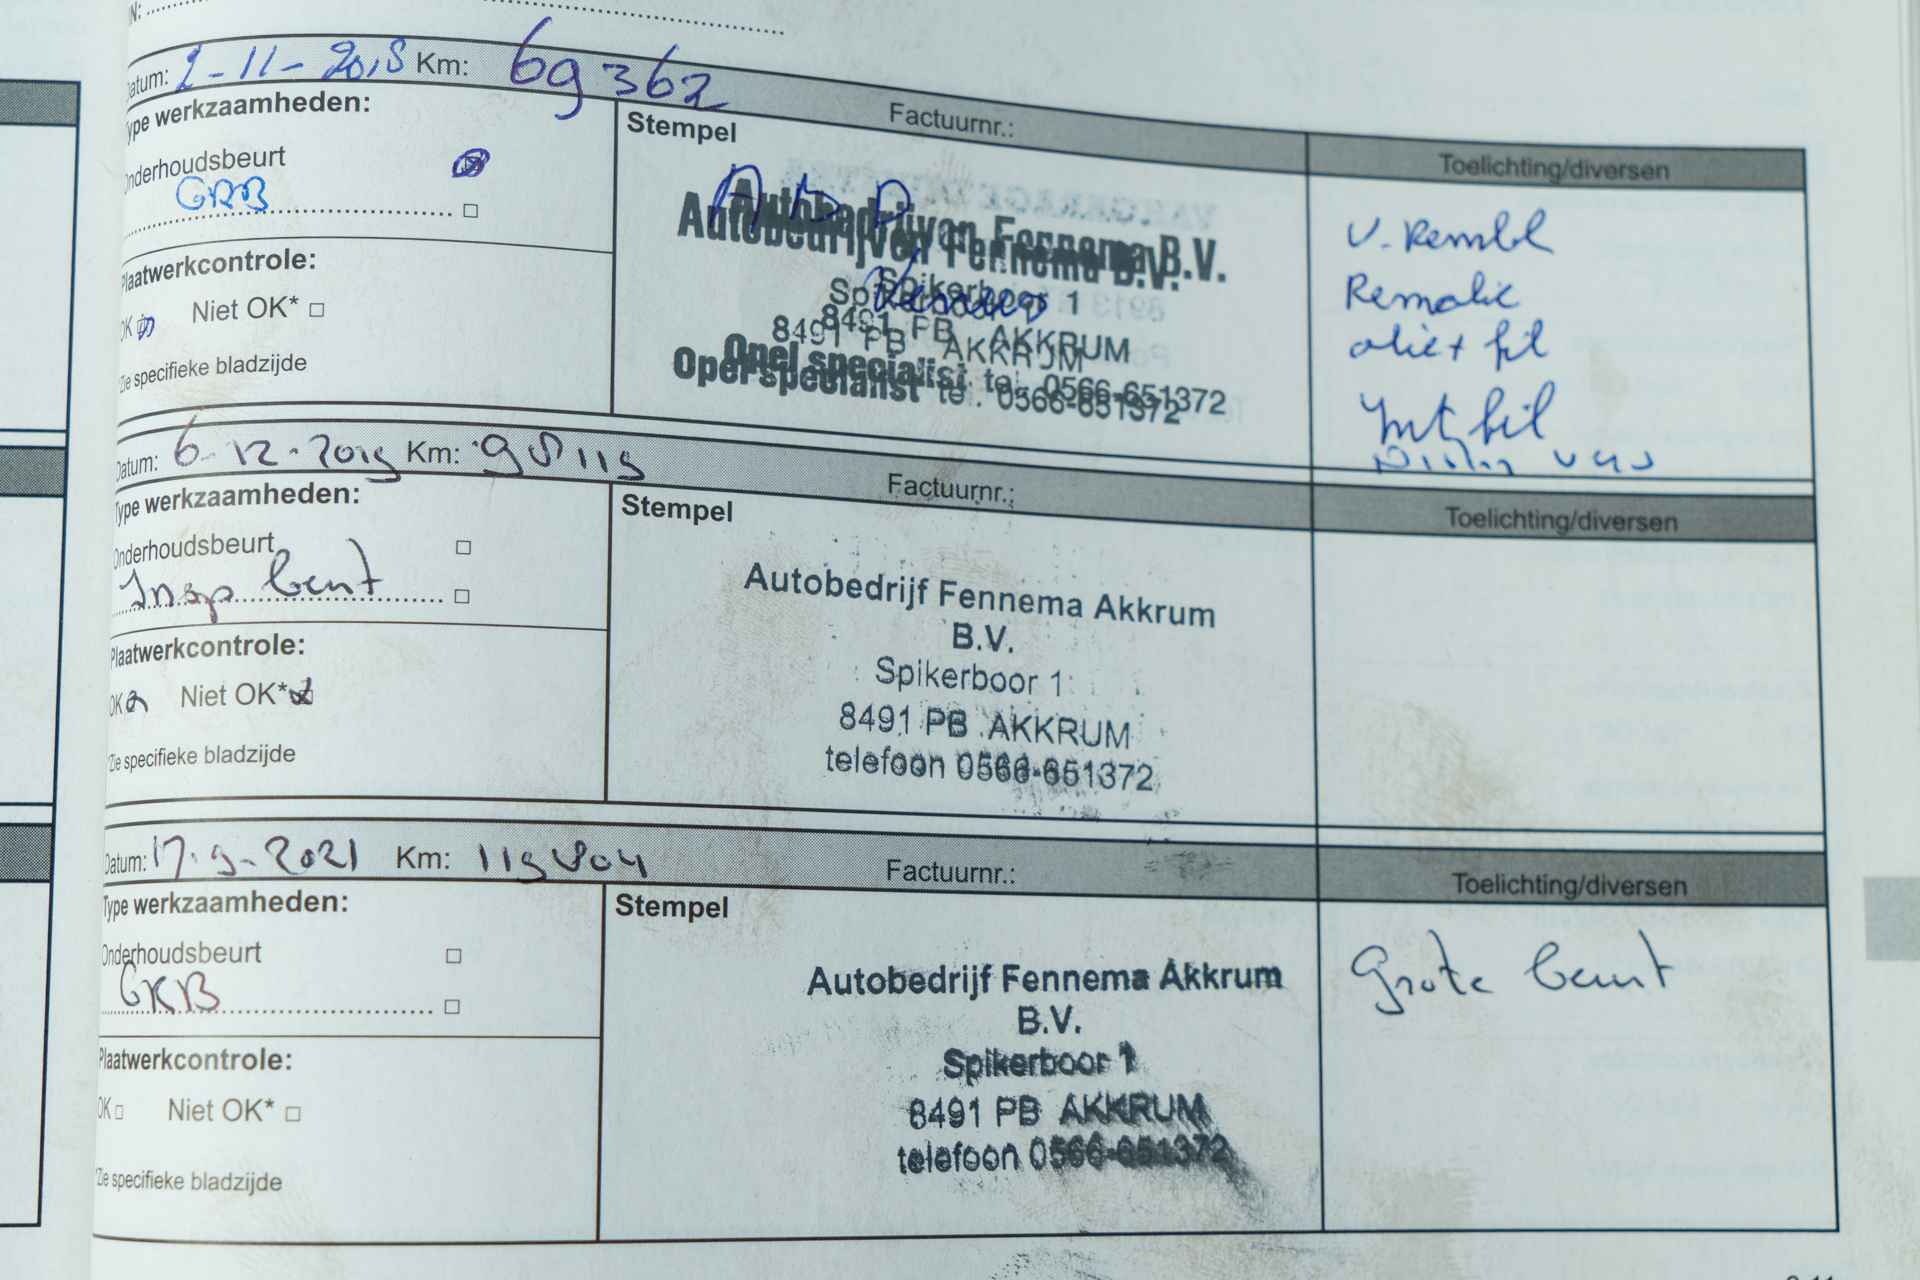 Datum: 2-11-2018 Km: 69362
Factuurnr.:
Toelichting/diversen
Type werkzaamheden:
Stempel
Onderhoudsbeurt
GRB
Plaatwerkcontrole:
OK Niet OK*
*Zie specifieke bladzijde
Autobedrijven Fennema B.V.
Spikerboor 1
8491 PB AKKRUM
Opel specialist tel. 0566-651372
V. Remvl
Remolie
olie + fil
Int fil
Datum: 6-12-2019 Km: 98119
Factuurnr.:
Toelichting/diversen
Type werkzaamheden:
Stempel
Onderhoudsbeurt
Insp beurt
Plaatwerkcontrole:
OK Niet OK*
*Zie specifieke bladzijde
Autobedrijf Fennema Akkrum
B.V.
Spikerboor 1
8491 PB AKKRUM
telefoon 0566-651372
Datum: 17-9-2021 Km: 119804
Factuurnr.:
Toelichting/diversen
Type werkzaamheden:
Stempel
Onderhoudsbeurt
GRB
Plaatwerkcontrole:
OK Niet OK*
*Zie specifieke bladzijde
Autobedrijf Fennema Akkrum
B.V.
Spikerboor 1
8491 PB AKKRUM
telefoon 0566-651372
Grote beurt